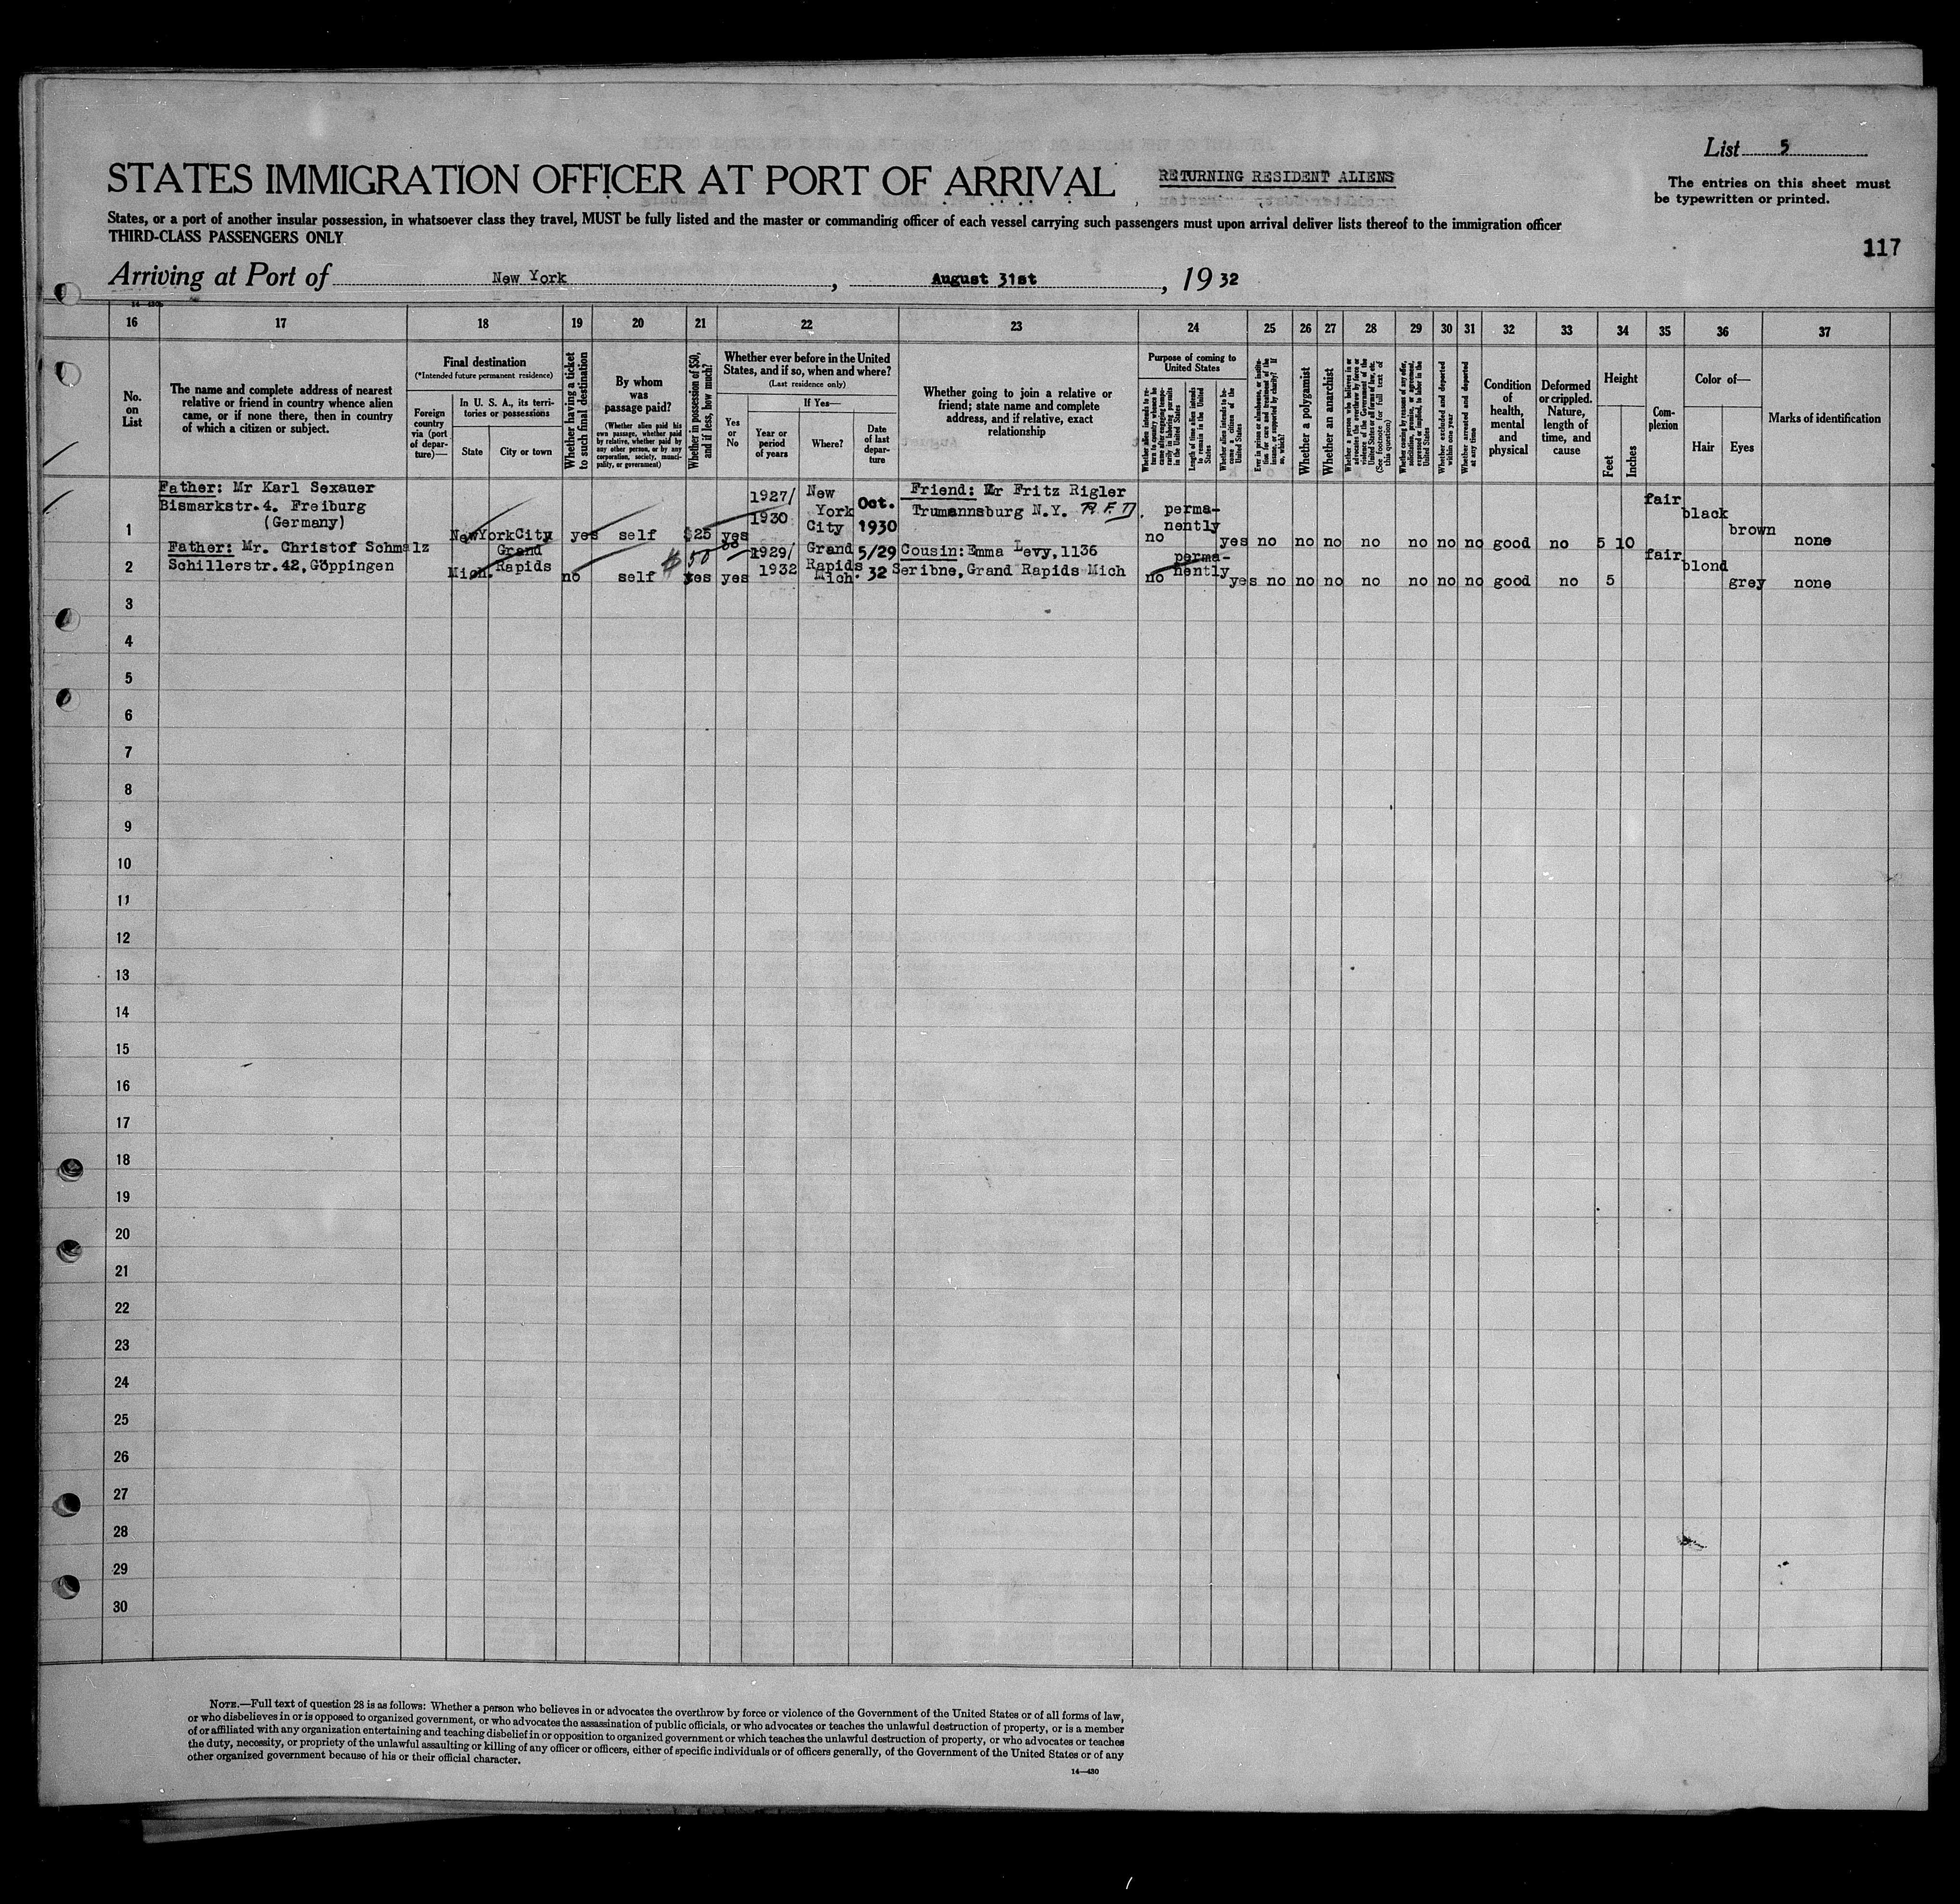 List 5
STATES IMMIGRATION OFFICER AT PORT OF ARRIVAL
RETURNING RESIDENT ALIENS
The entries on this sheet must
be typewritten or printed.
States, or a port of another insular possession, in whatsoever class they travel, MUST be fully listed and the master or commanding officer of each vessel carrying such passengers must upon arrival deliver lists thereof to the immigration officer
THIRD-CLASS PASSENGERS ONLY
117
Arriving at Port of New York, August 31st, 1932
16 17 18 19 20 21 22 23 24 25 26 27 28 29 30 31 32 33 34 35 36 37
No.
on
List
The name and complete address of nearest
relative or friend in country whence alien
came, or if none there, then in country
of which a citizen or subject.
Final destination
(*Intended future permanent residence)
Foreign
country
via (port
of depar-
ture)—
In U. S. A., its terri-
tories or possessions
State
City or town
Whether having a ticket
to such final destination
By whom
was
passage paid?
(Whether alien paid his
own passage, whether paid
by relative, whether paid by
any other person, or by any
corporation, society, munici-
pality, or government)
Whether in possession of $50,
and if less, how much?
Whether ever before in the United
States, and if so, when and where?
(Last residence only)
Yes
or
No
If Yes—
Year or
period
of years
Where?
Date
of last
depar-
ture
Whether going to join a relative or
friend; state name and complete
address, and if relative, exact
relationship
Purpose of coming to
United States
Whether alien intends to re-
turn to country whence he
came after engaging tempo-
rarily in laboring pursuits
in the United States
Length of time alien intends
to remain in the United
States
Whether alien intends to be-
come a citizen of the
United States
Ever in prison or almshouse, or institu-
tion for care and treatment of the
insane, or supported by charity? If
so, which?
Whether a polygamist
Whether an anarchist
Whether a person who believes in or
advocates the overthrow by force or
violence of the Government of the
United States or all forms of law, etc.
(See footnote for full text of
this question)
Whether coming by reason of any offer,
solicitation, promise, or agreement,
expressed or implied, to labor in the
United States
Whether excluded and deported
within one year
Whether arrested and deported
at any time
Condition
of
health,
mental
and
physical
Deformed
or crippled.
Nature,
length of
time, and
cause
Height
Feet
Inches
Com-
plexion
Color of—
Hair
Eyes
Marks of identification
1
Father: Mr Karl Sexauer
Bismarkstr.4. Freiburg
(Germany)
NewYorkCity
yes
self
$25
yes
1927/
1930
New
York
City
Oct.
1930
Friend: Mr Fritz Rigler
Trumannsburg N.Y. R.F.D.
no
perma-
nently
yes no no no no no no no good no 5 10
fair
black
brown
none
2
Father: Mr. Christof Schmalz
Schillerstr.42,Göppingen
Mich.
Grand
Rapids
no
self
$ 50
yes
yes
1929/
1932
Grand
Rapids
Mich.
5/29
32
Cousin: Emma Levy,1136
Seribne,Grand Rapids Mich
no
perma-
nently
yes no no no no no no no good no 5
fair
blond
grey
none
3
4
5
6
7
8
9
10
11
12
13
14
15
16
17
18
19
20
21
22
23
24
25
26
27
28
29
30
NOTE.—Full text of question 28 is as follows: Whether a person who believes in or advocates the overthrow by force or violence of the Government of the United States or of all forms of law,
or who disbelieves in or is opposed to organized government, or who advocates the assassination of public officials, or who advocates or teaches the unlawful destruction of property, or is a member
of or affiliated with any organization entertaining and teaching disbelief in or opposition to organized government or which teaches the unlawful destruction of property, or who advocates or teaches
the duty, necessity, or propriety of the unlawful assaulting or killing of any officer or officers, either of specific individuals or of officers generally, of the Government of the United States or of any
other organized government because of his or their official character.
14—430